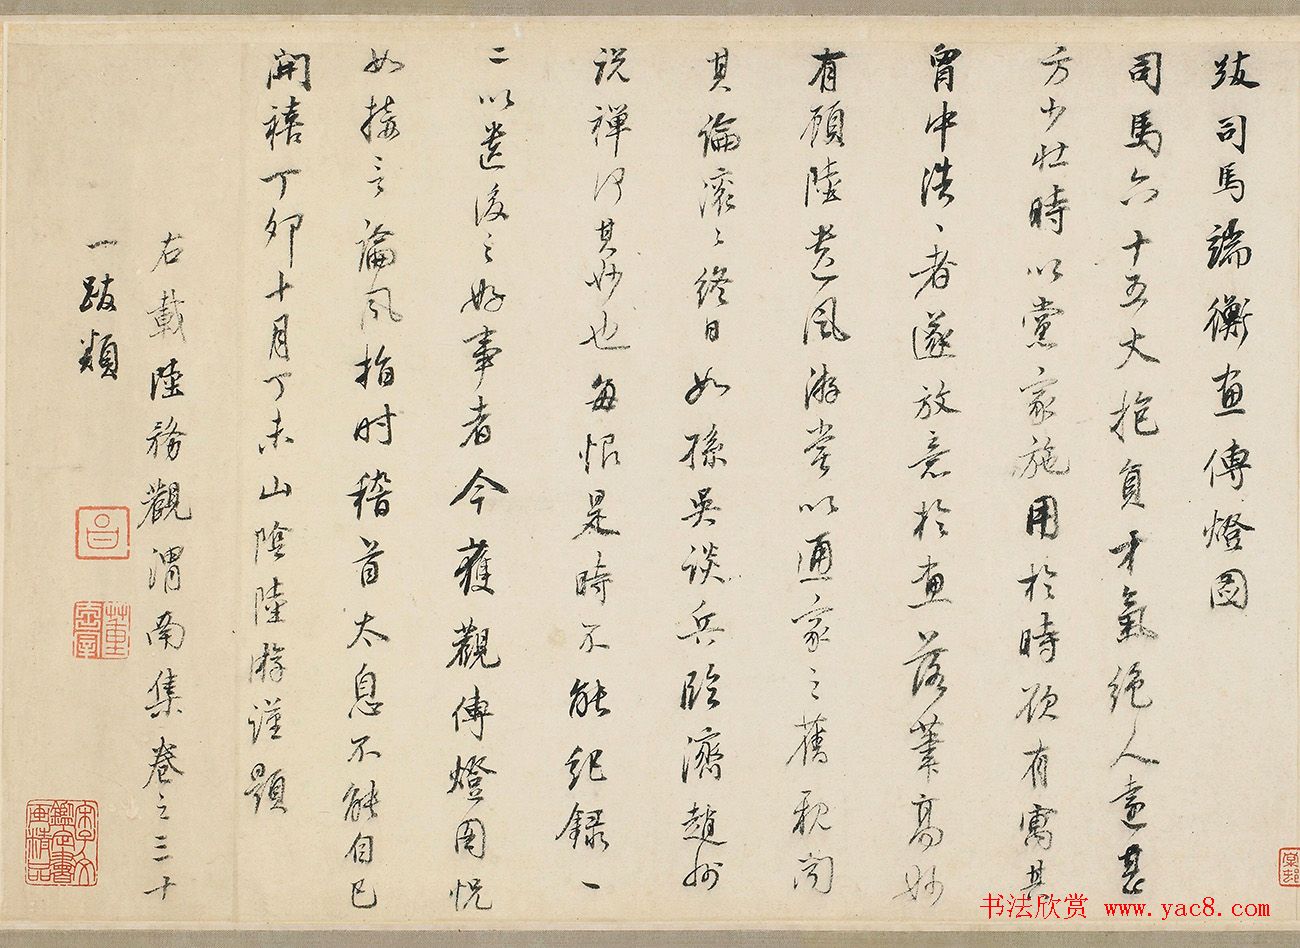 跋司馬端衡畫傳燈圖
司馬六十五丈抱負才氣絶人遠甚
方少壯時以黨家施用於時欲有寓其
胷中浩〻者遂放意於畫落筆高妙
有顧陸遺風游嘗以通家之舊親聞
其論滚〻終日如孫吳談兵臨濟趙州
説禪何其妙也每恨是時不能紀録一
二以遺後之好事者今獲觀傳燈圖怳
如接言論風指時稽首太息不能自已
開禧丁卯十月丁未山陰陸游謹題
右載陸務觀渭南集卷之三十
一跋類
书法欣赏 www.yac8.com